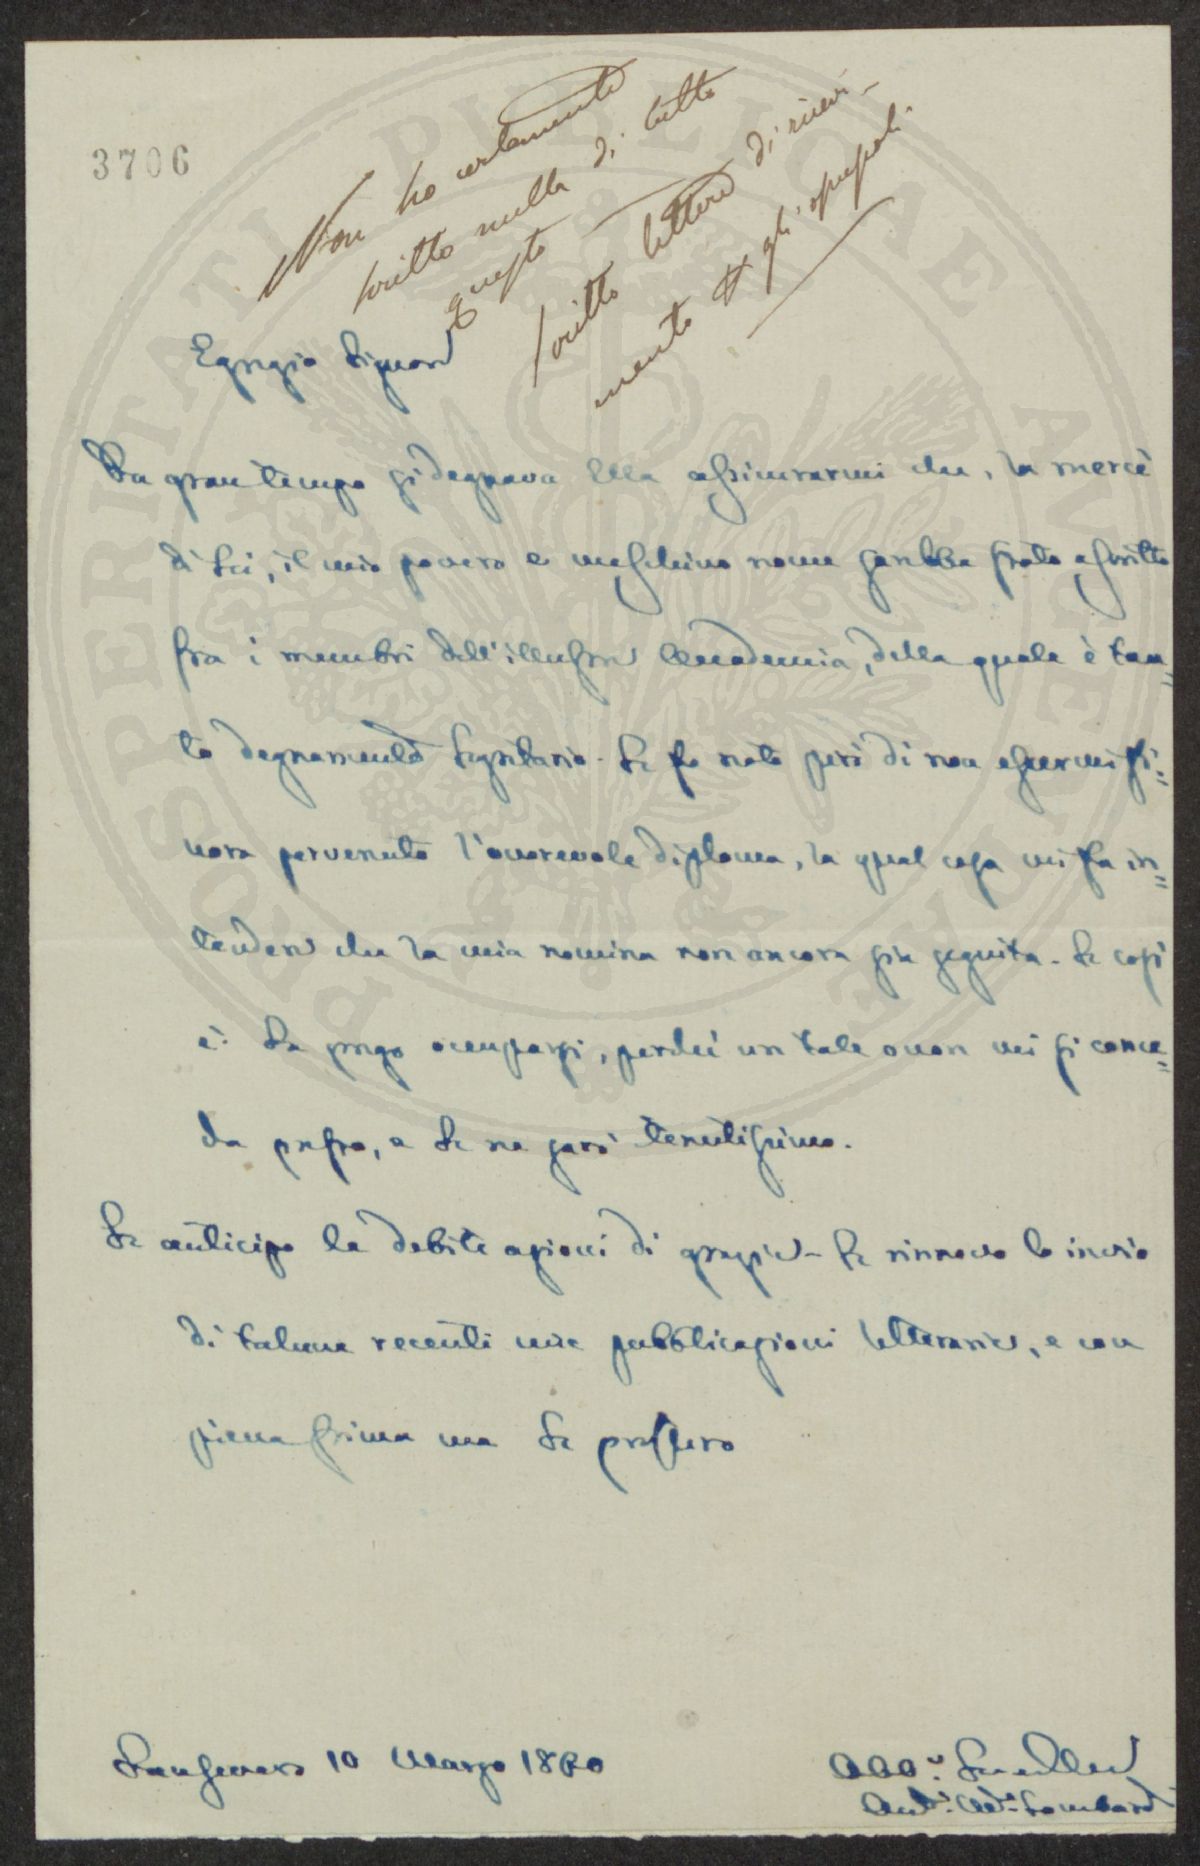 3706
Non ho certamente
scritto nulla di tutto
questo
scritto lettera di ricevi-
mento gli opuscoli.
Egregio Signore
Da gran tempo si degnava Ella assicurarmi che, la mercè
di Lei, il mio povero e meschino nome sarebbe stato ascritto
fra i membri dell'illustre Accademia, della quale è tan=
to degnamente Segretario. Le fo noto però di non essermi fi=
nora pervenuto l'onorevole diploma, la qual cosa mi fa in=
tendere che la mia nomina non ancora sia seguita. Se così
è: La prego occuparsi, perchè un tale onore mi si conce=
da presto, e Le ne sarò tenutissimo.
Le anticipo le debite azioni di grazie. Le rinnovo lo invio
di talune recenti mie pubblicazioni letterarie, e con
piena stima me Le profferо
Sansevero 10 Marzo 1860
Lombardi
PROSPERITATI PUBLICAE AVGENDAE